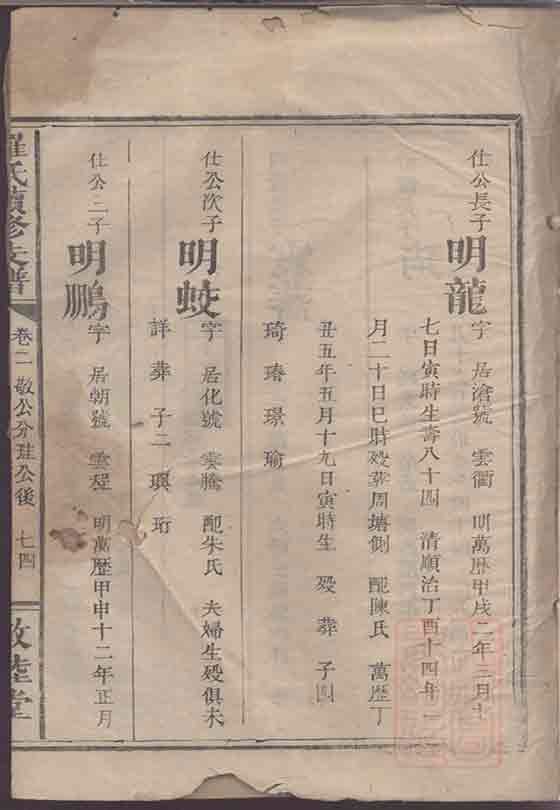 仕公長子
明龍
字 居滄號 雲衢 明萬歷甲戌二年三月十
七日寅時生壽八十四 清順治丁酉十四年二
月二十日巳時殁葬周塘側 配陳氏 萬歷丁
丑五年五月十九日寅時生 殁 葬 子四
琦 瑃 璟 瑜
仕公次子
明蛟
字 居化號 雲騰 配朱氏 夫婦生殁俱未
詳 葬 子二 璵 珩
仕公三子
明鵬
字 居朝號 雲程 明萬歷甲申十二年正月
羅氏續修支譜
卷二 敬公分珪公後 七四
敦睦堂